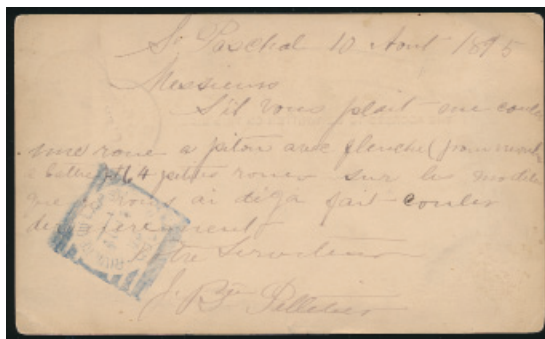 St Paschal 10 Aout 1895
Messieurs
S'il vous plait me coule
une roue a piton avec flenche (pour moulin
a battre) 64 petites roues sur le modele
que vous ai déja fait couler
dernierement
Votre Serviteur
J. Bte Pelletier